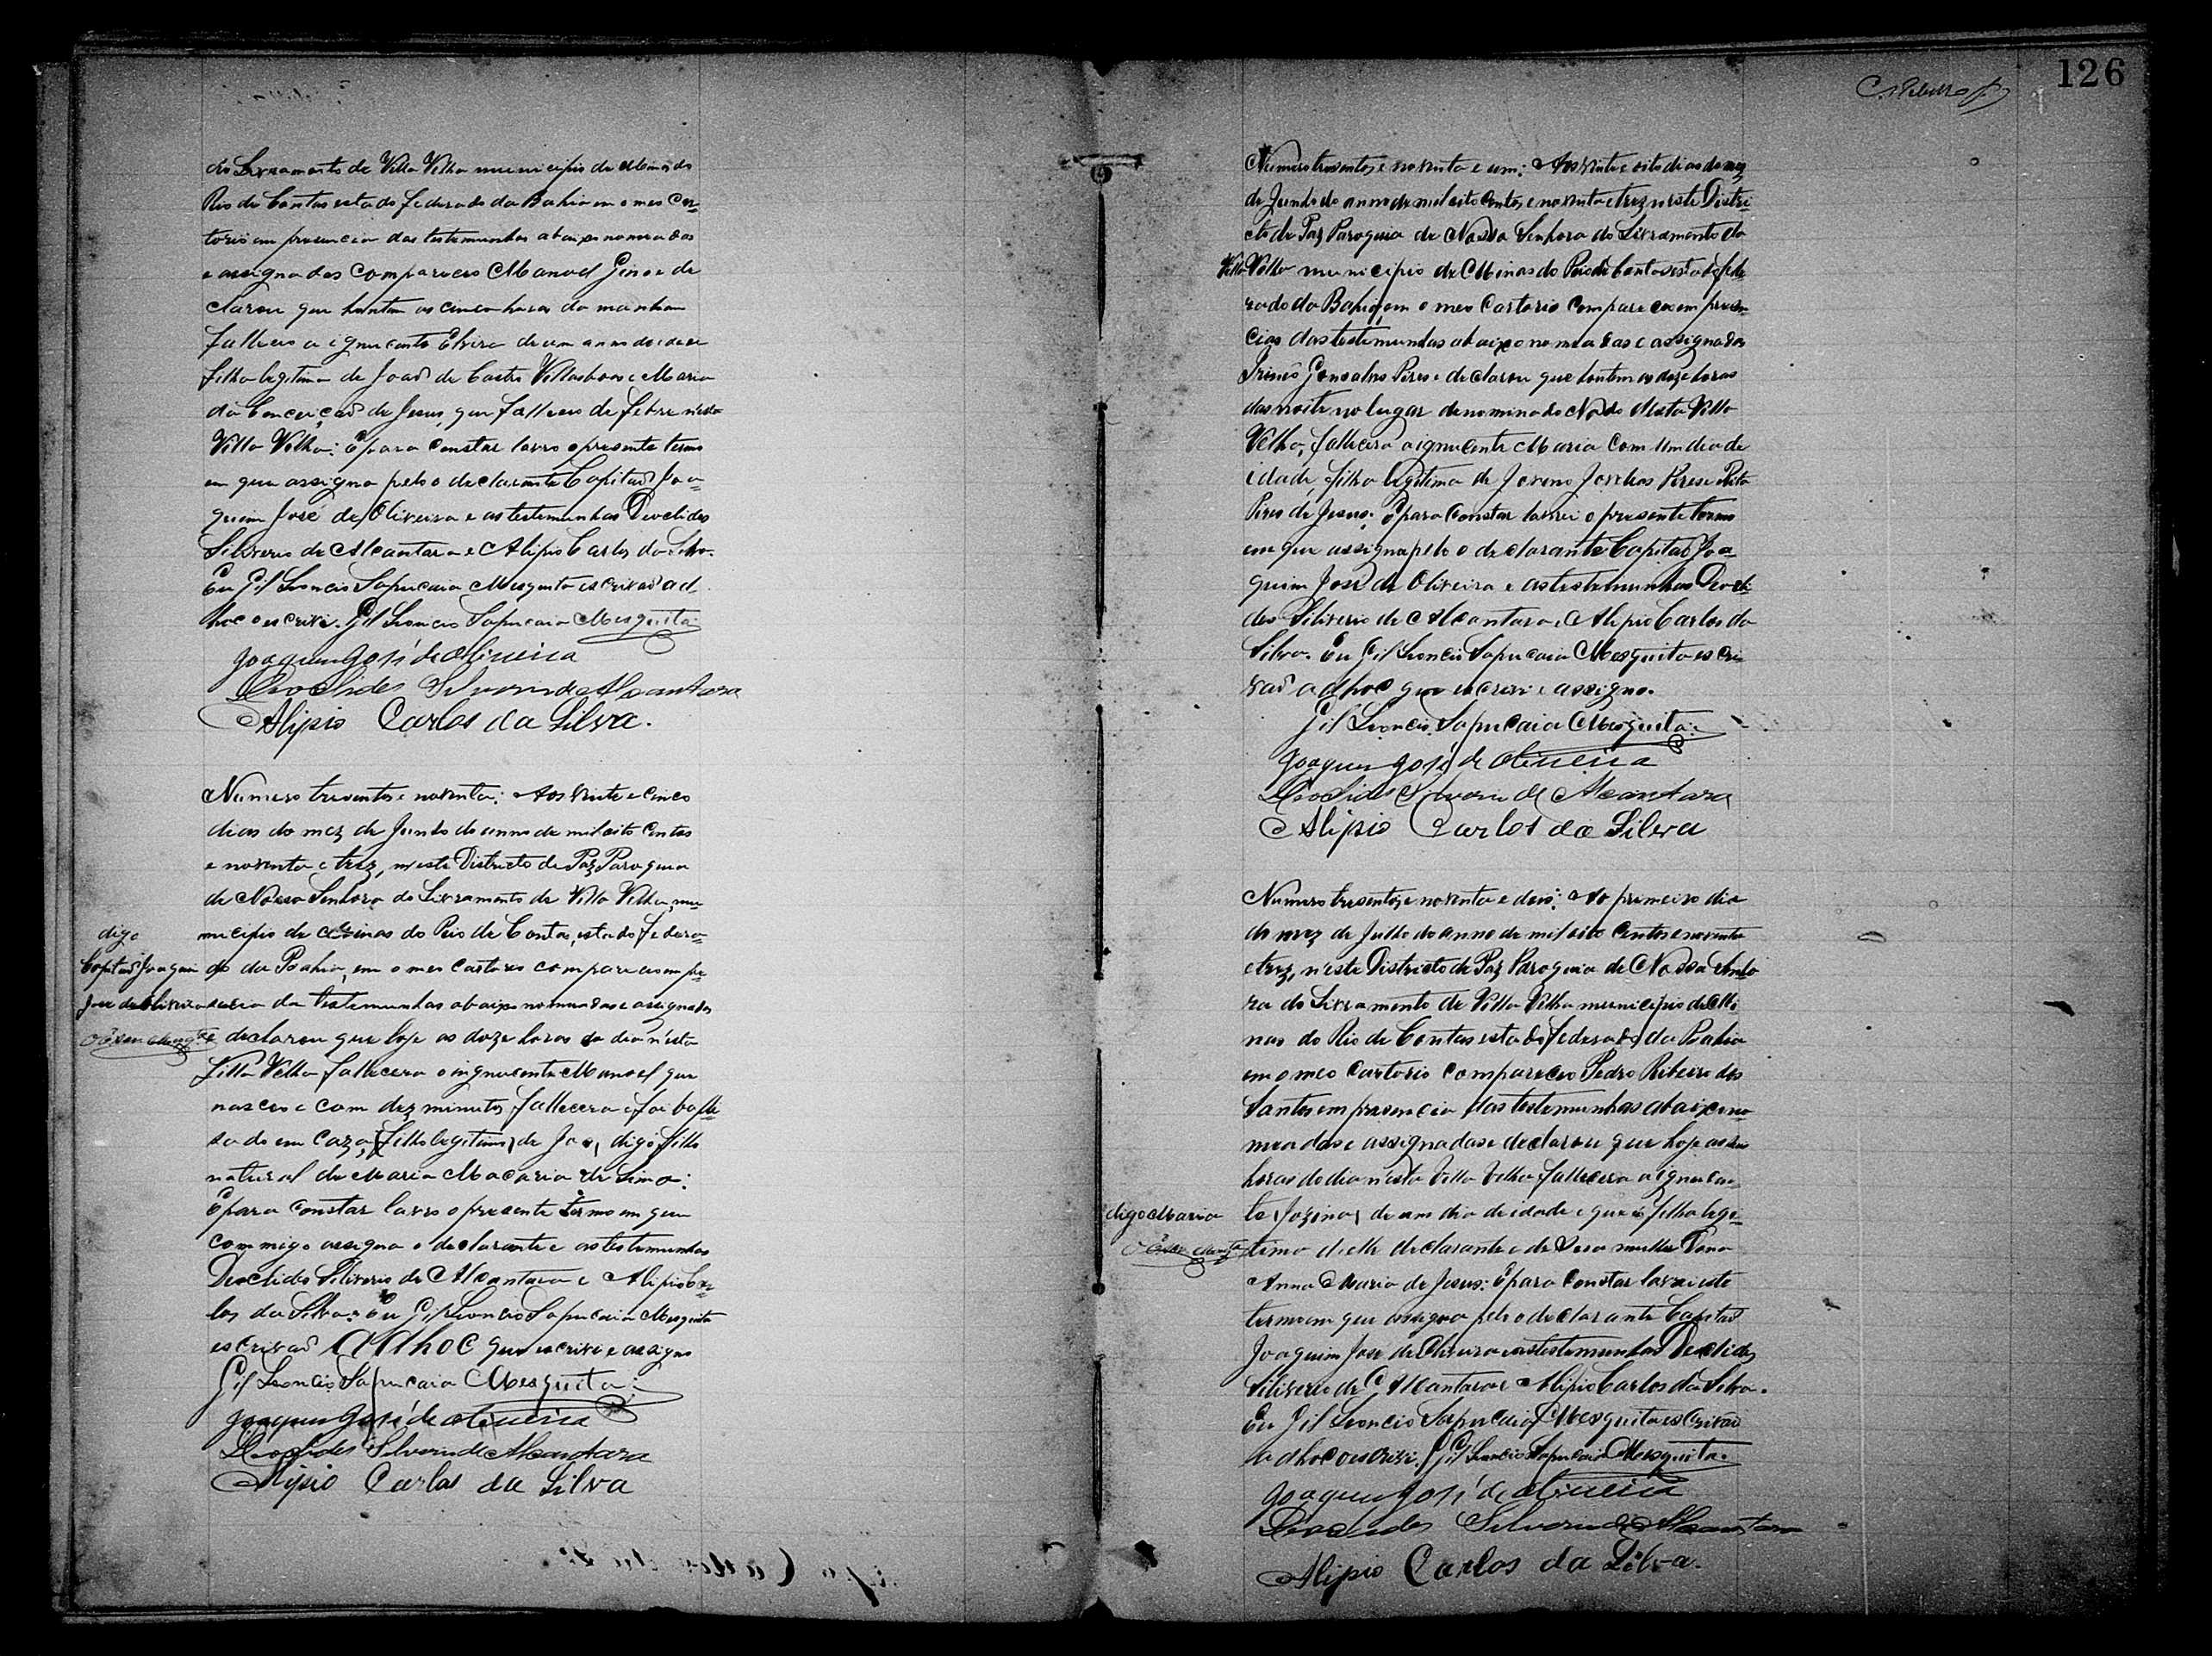 do Livramento de Villa Velha municipio de Minas do
Rio de Contas estado federado da Bahia em o meu Car-
torio em presencia das testemunhas abaixo nomeadas
e assignadas compareceo Manoel e de
clarou que hontem as cinco horas da manhan
falleceo a ignucente Elvira de um anno de idade
filha legitima de Joaõ de Castro Villasboas e Maria
da Conceiçaõ de Jesus, que falleceo de febre n'esta
Villa Velha: E para constar lavro o presente termo
em que assigna pelo o declarante Capitaõ Joa-
quim José de Oliveira e as testemunhas Deoclides
Silverio de Alcantara e Alipio Carlos da Silva.
Eu Gil Leoncio Sapucaia Mesquita escrivaõ ad-
hoc o escrivi. Gil Leoncio Sapucaia Mesquita
Joaquim José de Oliveira
Deoclides Silverio de Alcantara
Alipio Carlos da Silva.
Numero tresentos e noventa: Aos vinte e cinco
dias do mez de Junho do anno de mil oito centos
e noventa e trez, n'este Districto de Paz Paroquia
de Nossa Senhora do Livramento de Villa Velha, mu-
nicipio de Minas do Rio de Contas, estado federa-
do da Bahia, em o meu Cartorio compareceo em pre-
sencia da testemunhas abaixo nomeadas e assignadas
e declarou que hoje as doze horas do dia n'esta
Villa Velha fallecera o ignucente Manoel que
nasceo e com dez minutos fallecera e foi bapti-
sado em caza, (filho legitimo) de Joa, digo, filho
natural de Maria Macaria de Lima:
E para constar lavro o presente termo em que
commigo assigna o declarante e as testemunhas
Deoclides Silverio de Alcantara e Alipio Car-
los da Silva: Eu Gil Leoncio Sapucaia Mesquita
escrivaõ adhoc que escrivi e assigno
Gil Leoncio Sapucaia Mesquita:
Joaquim José de Oliveira
Deoclides Silverio de Alcantara
Alipio Carlos da Silva
digo
Capitaõ Joaquim
José de Oliveira
126
Numero tresentos e noventa e um: Aos vinte e oito dias do mez
de Junho do anno de mil oito centos e noventa e trez n'este Distri-
cto de Paz Paroquia de Nossa Senhora do Livramento da
Villa Velha municipio de Minas do Rio de Contas estado fede-
rado da Bahia, em o meu Cartorio compareceo em presen-
cias das testemunhas abaixo nomeadas e assignadas
Irineo Gonsalves Pires e declarou que hontem as doze horas
das noite no lugar denominado Nado desta Villa
Velha, fallecera a ignucente Maria com um dia de
idade, filha legitima de Pires e Rita
Pires de Jesus: E para constar lavrei o presente termo
em que assigna pelo o declarante Capitaõ Joa-
quim José de Oliveira e as testemunhas Deocli-
des Silverio de Alcantara e Alipio Carlos da
Silva. Eu Gil Leoncio Sapucaia Mesquita escri-
vaõ adhoc que escrevi e assigno.
Gil Leoncio Sapucaia Mesquita:
Joaquim José de Oliveira
Deoclides Silverio de Alcantara
Alipio Carlos da Silva
Numero tresentos e noventa e dois: Ao primeiro dia
do mez de Julho do anno de mil oito centos e noventa
e trez, n'este Districto de Paz Paroquia de Nossa Senho
ra do Livramento de Villa Velha municipio de Mi
nas do Rio de Contas estado federado da Bahia
em o meo Cartorio compareceo Pedro Ribeiro dos
Santos em presencia das testemunhas abaixo no-
meadas e assignadas e declarou que hoje as
horas do dia n'esta Villa Velha fallecera a ignucen-
te (Jozina) de um dia de idade e que é filha legi-
tima d'elle declarante e de sua mulher Dona
Anna Maria de Jesus: E para constar lavrei este
termo em que assigna pelo o declarante Capitaõ
Joaquim José de Oliveira e as testemunhas Deoclides
Silverio de Alcantara e Alipio Carlos da Silva.
Eu Gil Leoncio Sapucaia Mesquita escrivaõ
adhoc o escrivi. Gil Leoncio Sapucaia Mesquita.
Joaquim José de Oliveira
Deoclides Silverio de Alcantara
Alipio Carlos da Silva.
digo Maria